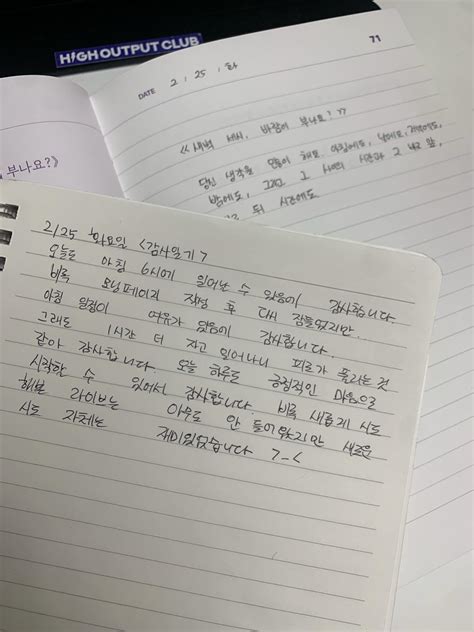 HIGH OUTPUT CLUB
71
DATE 2 . 25 . 화
부나요?》
《새벽 4시, 바람이 부나요?》
당신 생각을 많이 해요. 아침에도, 낮에도, 저녁에도,
밤에도, 그리고 그 사이의 시간과 그 바로 앞,
뒤 시간에도
2/25 화요일 <감사일기>
오늘도 아침 6시에 일어난 수 있음에 감사합니다.
비록 모닝페이지 작성 후 다시 잠들었지만...
아침 일정이 여유가 있음에 감사합니다.
그래도 1시간 더 자고 일어나니 피로가 풀리는 것
같아 감사합니다. 오늘 하루도 긍정적인 마음으로
시작할 수 있어서 감사합니다. 비록 새롭게 시도
해본 라이브는 아무도 안 들어왔지만 새로운
시도 자체는 재미있었습니다 >_<